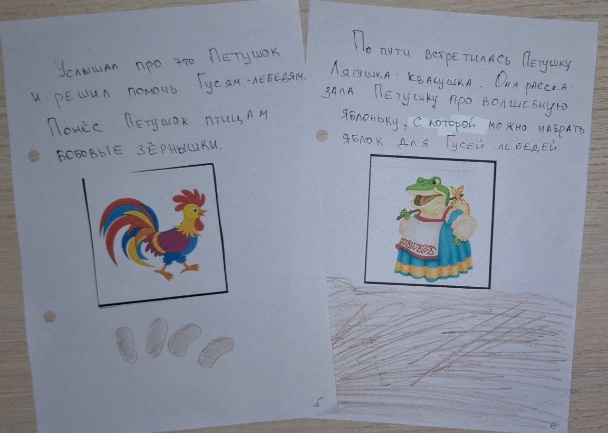 Услышал про это Петушок
и решил помочь Гусям-лебедям.
Понёс Петушок птицам
бобовые зёрнышки.
5
По пути встретилась Петушку
Лягушка-квакушка. Она расска-
зала Петушку про волшебную
яблоньку, с которой можно набрать
яблок для Гусей-лебедей.
6